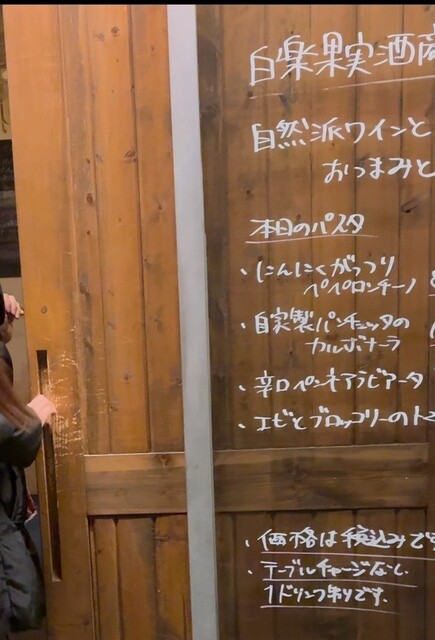 自楽果実酒
自然派ワインと
おつまみと
本日のパスタ
・にんにくがっつり
ペペロンチーノ
・自家製パンチェッタの
カルボナーラ
・辛口ペンネアラビアータ
・エビとブロッコリーのト
・価格は税込みで
・テーブルチャージなし
1ドリンク制です。